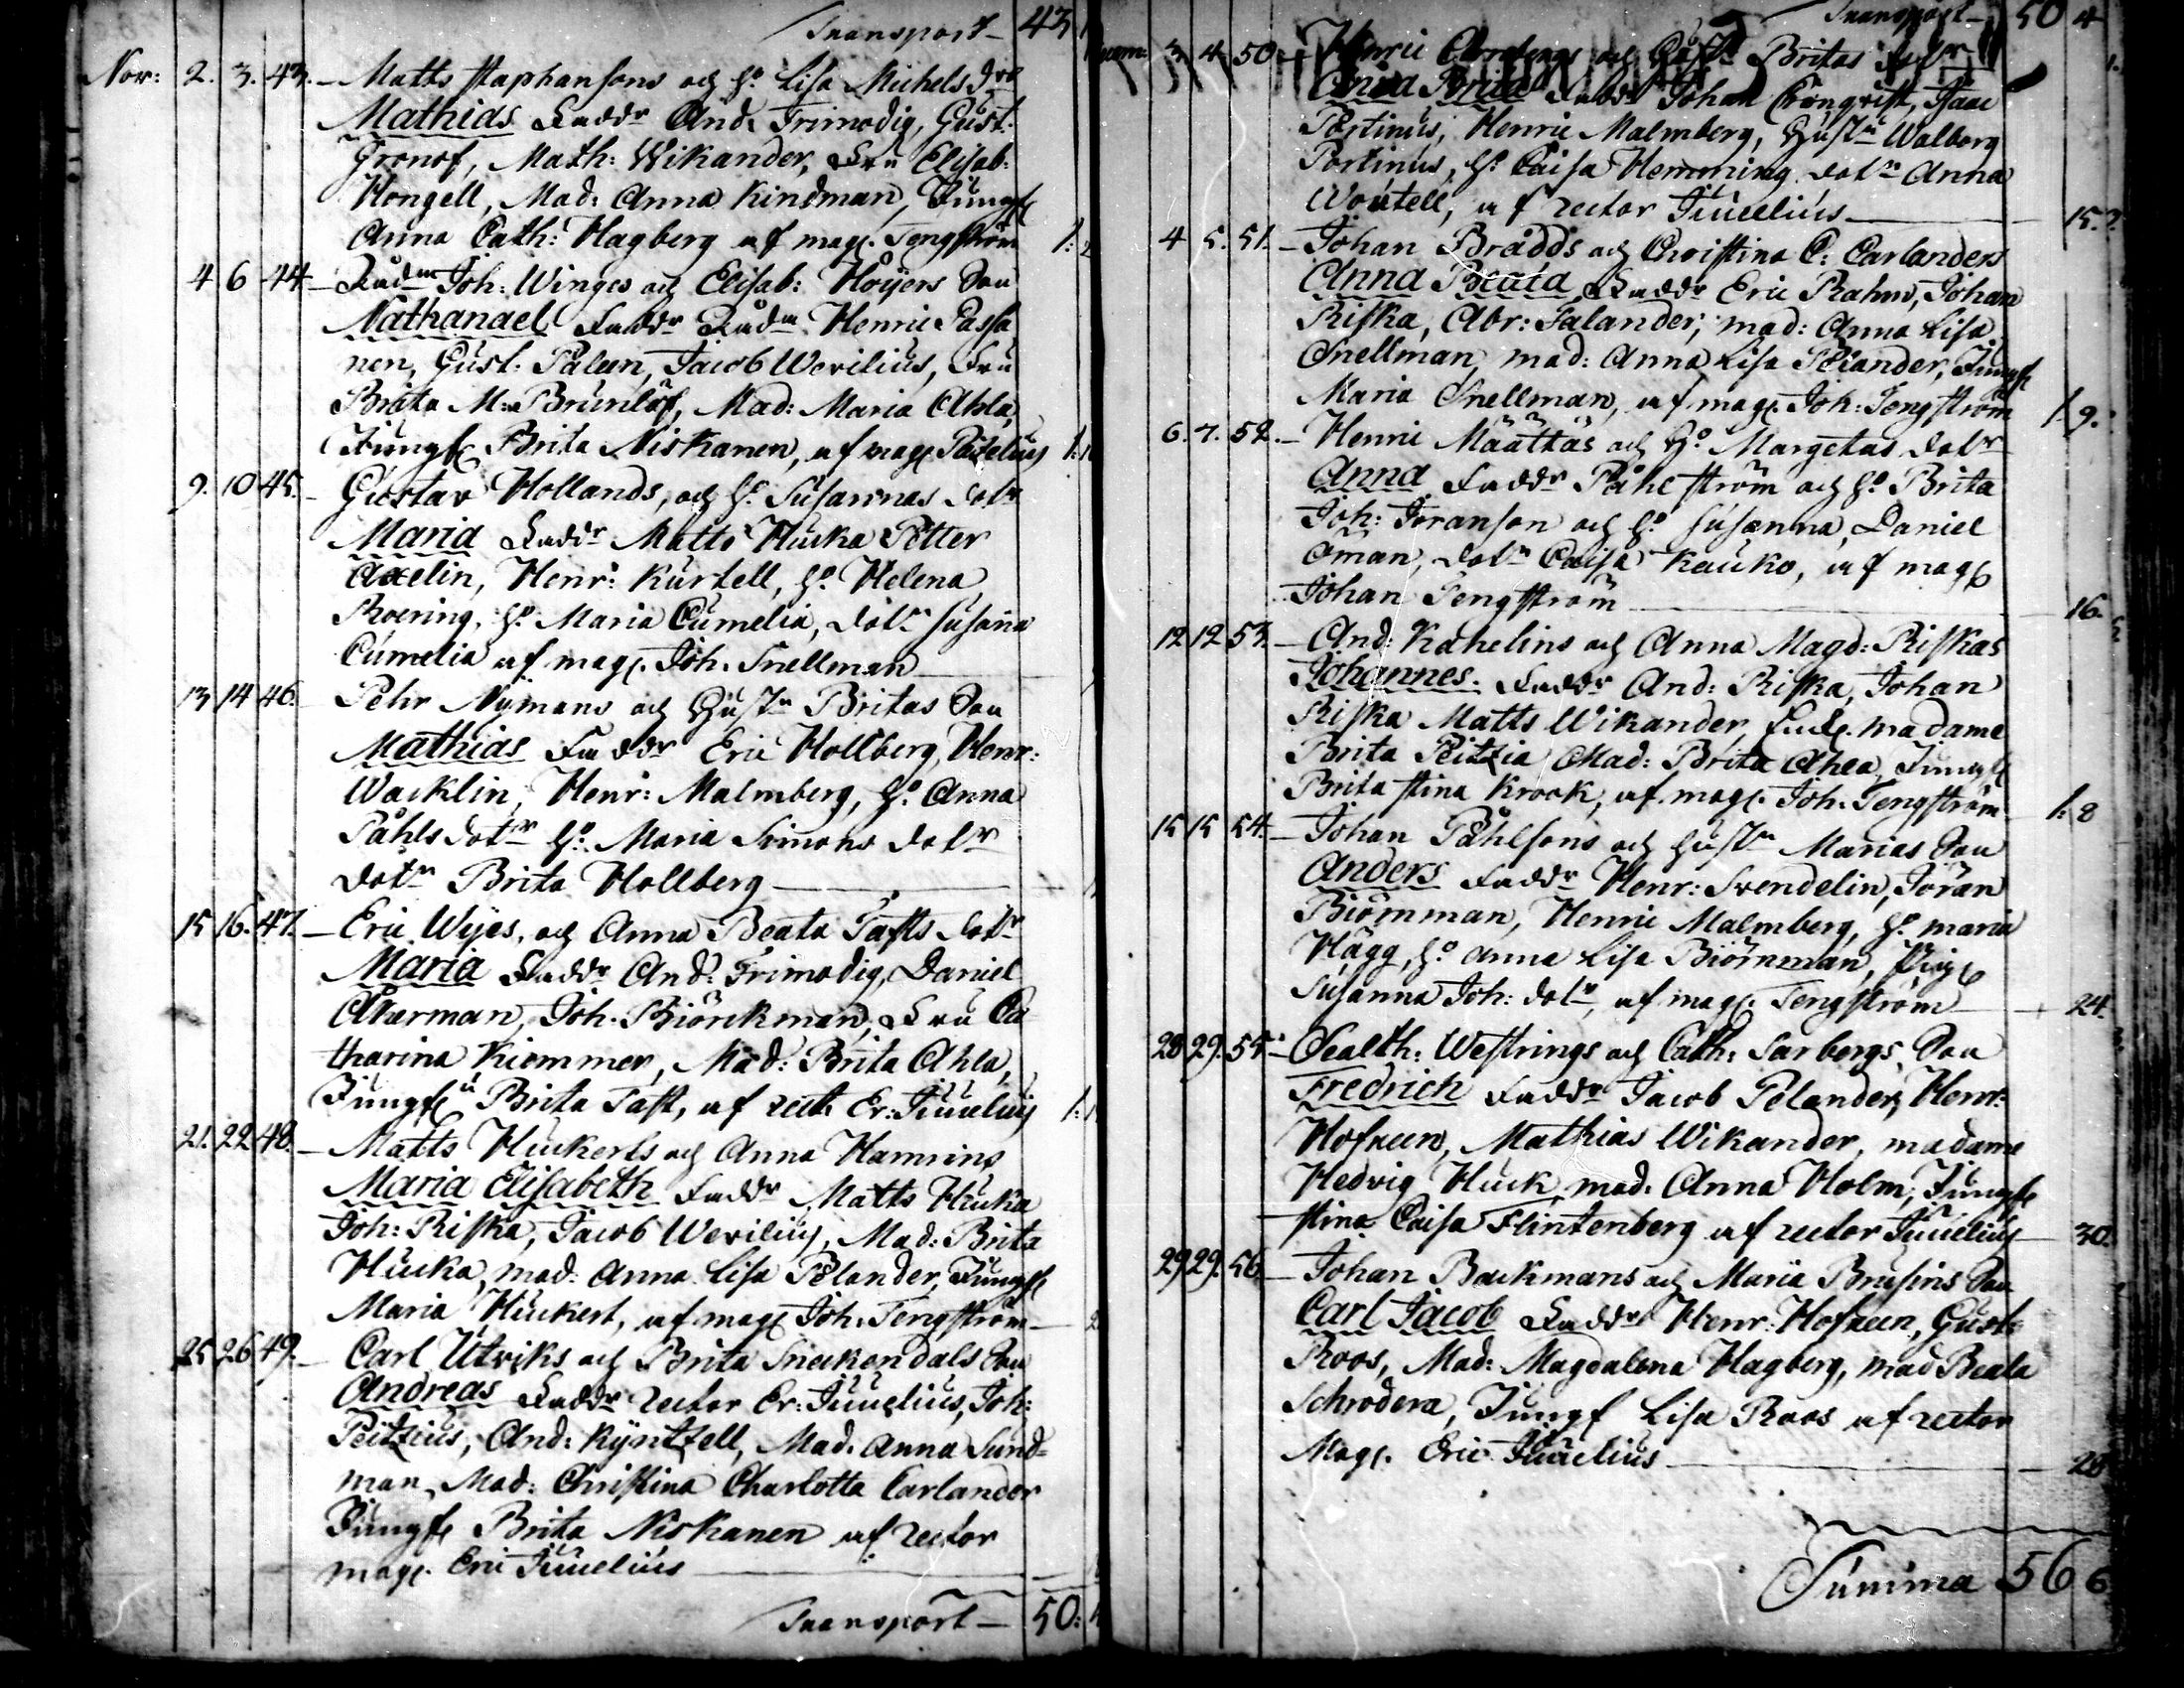 Transport — 43
Nov: 2. 3. 43. — Matts Staphansons och h:o Lisa Michels dr
Mathias Faddr And: Frimodig, Gust:
Gronof, Math: Wikander, Fru Elisab:
Hongell, Mad: Anna Kindman, Jungf
Anna Cath: Hagberg af mag. Tengström 1:2
4 6 44 — Rådm Joh: Winges och Elisab: Höijers Son
Nathanael Faddr Rådm Henric Passa
nen, Gust: Paleen, Jacob Werilius, Fru
Brita M: Brunlöf, Mad: Maria Ahla,
Jungf Brita Niskanen, af mag
9. 10 45. — Gustav Hollands, och h:o Susannas dotr
Maria Faddr Matts Hucka Petter
Axelin, Henr: Kurtell, h:o Helena
Roering, h:o Maria Cumelia, dotr Susana
Cumelia af mag. Joh. Snellman
13 14 46. — Pehr Nymans och Hustr Britas Son
Mathias Faddr Eric Hollberg, Henr:
Wacklin, Henr: Malmberg, h:o Anna
Påhls dotr h:o Maria Simons dotr
dotr Brita Hollberg —
15 16. 47. — Eric Wijes, och Anna Beata Tafts dotr
Maria Faddr And: Frimodig, Daniel
Åkerman, Joh. Biörckman, Fru Ca
tharina Kiemmer, Mad: Brita Ahla,
Jungf Brita Taft, af rect. Er: Juuelius
21. 22 48. — Matts Huckerts och Anna Hamrins
Maria Elisabeth Faddr Matts Hucka
Joh: Riska, Jacob Werilius, Mad: Brita
Hucka, mad: Anna Lisa Pelander, Jungf
Maria Huckert, af mag Joh. Tengström —
25 26 49. — Carl Utriks och Brita Sneckendals Son
Andreas Faddr rector Er: Juuelius, Joh:
Peitzius, And: Kyntzell, Mad. Anna Sund=
man, Mad: Christina Charlotta Carlander
Jungf Brita Niskanen af rector
mag. Eric Juuelius —
Transport — 50:
Transport — 50 4
3 4 50 — Henric och Hustr Britas dotr
Anna Brita Faddr Johan Cronqvist, Isaac
Portinus, Henric Malmberg, Hustr Walborg
Portinus, h:o Caisa Hemming dotr Anna
af rector Juuelius — 15.
4 5. 51. — Johan Brådds och Christina C: Carlanders
Anna Beata, Faddr Eric Rahm, Johan
Riska, Abr: Falander, mad: Anna Lisa
Snellman, mad: Anna Lisa Pelander, Jungf
Maria Snellman, af mag. Joh: Tengström 1. 9.
6. 7. 52. — Henric Määttäs och h:o Margetas dotr
Anna Faddr Påhlström och h:o Brita
Joh: Joranson och h:o Susanna, Daniel
Öman, dotr Caisa Kauko, af mag
Johan Tengström — 16.
12 12 53. — And: Kahelins och Anna Magd: Riskas
Johannes. Faddr And: Riska, Johan
Riska Matts Wikander, madame
Brita Peitzia Mad: Brita Ahla, Jungf
Brita Stina Krook, af mag. Joh. Tengström 1: 8
15 15 54. — Johan Påhlsons och hustr Marias Son
Anders Faddr Henr: Svendelin, Jöran
Biörnman, Henric Malmberg, h:o Maria
Hägg, h:o Anna Lisa Biörnman, Pig
Susanna Joh: dotr, af mag. Tengström — 24.
28 29. 55 — Sealth: Westrings och Cath: Sarbergs, Son
Fredrich Faddr Jacob Pelander, Henr:
Hofreen, Mathias Wikander, madame
Hedvig Huck, mad. Anna Holm, Jungf
Stina Caisa Flintenberg af rector Juuelius — 30.
29 29. 56 — Johan Backmans och Maria Brusins Son
Carl Jacob Faddr Henr: Hofreen, Gust:
Roos, Mad: Magdalena Hagberg, mad Beata
Schrodera, Jungf Lisa Roos af rector
Mag. Eric Juuelius — 28
Summa 56 6